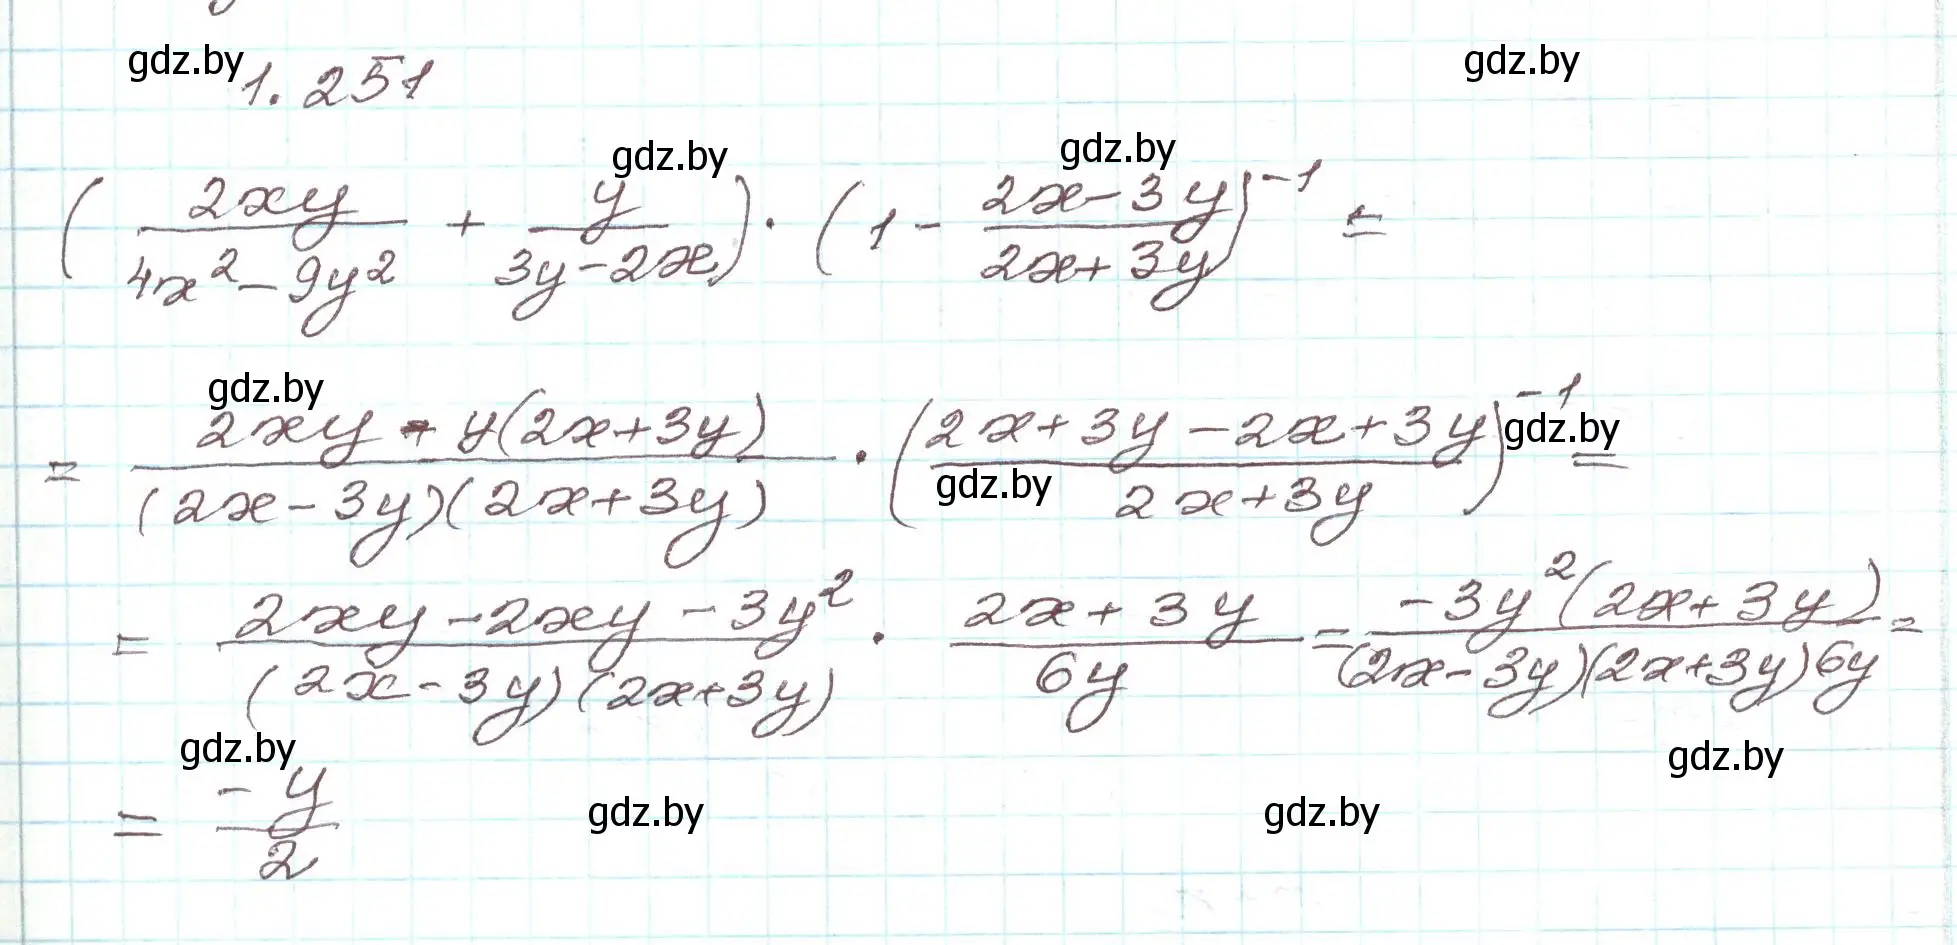 gdz.by 1.251 gdz.by
gdz.by gdz.by
(2xy/(4x² - 9y²) + y/(3y - 2x)) · (1 - (2x - 3y)/(2x + 3y))⁻¹ =
gdz.by
= (2xy - y(2x + 3y))/((2x - 3y)(2x + 3y)) · ((2x + 3y - 2x + 3y)/(2x + 3y))⁻¹ =
gdz.by
gdz.by
= (2xy - 2xy - 3y²)/((2x - 3y)(2x + 3y)) · (2x + 3y)/(6y) = (-3y²(2x + 3y))/((2x - 3y)(2x + 3y)6y) =
gdz.by gdz.by
= -y/2
gdz.by gdz.by